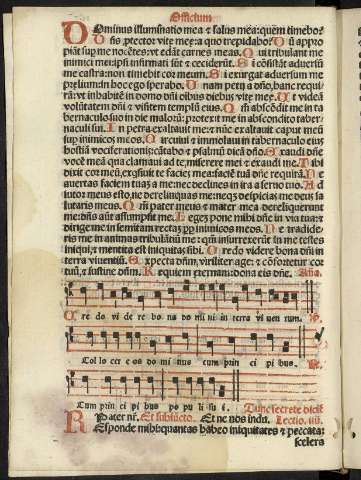 Officium
Dominus illuminatio mea & salus mea: quem timebo?
Dñs ptector vite mee: a quo trepidabo? Dũ appro
piãt sup me nocẽtes: vt edãt carnes meas. Qui tribulant me
inimici mei: ipsi infirmati sũt & ceciderũt. Si cõsistãt aduersũ
me castra: non timebit cor meum. Si exurgat aduersum me
prelium: in hoc ego sperabo. Unam petij a dño, hanc requi
rã: vt inhabitẽ in domo dñi oĩbus diebus vite mee. Ut videã
volũtatem dñi & visitem templũ eius. Qm̃ abscõdit me in ta
bernaculo suo in die malorũ: protexit me in abscondito taber
naculi sui. In petra exaltauit me: & nũc exaltauit caput meũ
sup inimicos meos. Circuiui & immolaui in tabernaculo eius
hostiã vociferationis: cãtabo & psalmũ dicã dño. Exaudi dñe
vocẽ meã qua clamaui ad te, miserere mei & exaudi me. Tibi
dixit cor meũ, exqsiuit te facies mea: faciẽ tuã dñe requirã. Ne
auertas faciem tuaz a me: nec declines in ira a seruo tuo. Ad
iutor meus esto, ne derelinquas me: neqz despicias me deus sa
lutaris meus. Qm̃ pater meus & mater mea dereliquerunt
me: dñs aũt assumpsit me. Legez pone mihi dñe in via tua: &
dirige me in semitam rectaz pp inimicos meos. Ne tradide
ris me in animas tribulãtiũ me: qm̃ insurrexerũt in me testes
iniqui, & mentita est iniquitas sibi. Credo videre bona dñi in
terra viuentiũ. Expecta dñm, viriliter age: & cõfortetur cor
tuũ, & sustine dñm. Requiem eternam: dona eis dñe. Aña.
Cre do vi de re bo na do mi ni in terra vi uen tium.
Col lo cet e os do mi nus cum prin ci pi bus.
Cum prin ci pi bus po pu li su i.
Tunc secrete dicit
Pater nr̃. Et subiũcto. Et ne nos indu. Lectio. iiij.
Responde mihi: quantas habeo iniquitates & peccata:
scelera